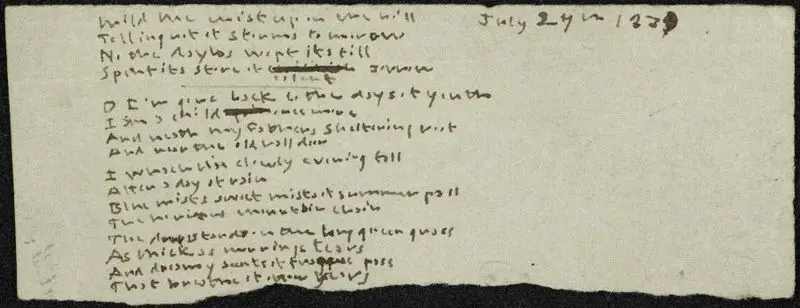 Mild the mist upon the hill July 27th 1839
Telling not of storms tomorrow
No the day has wept its fill
Spent its store of sorrow
silent
O I'm gone back to the days of youth
I am a child once more
And neath my fathers sheltering roof
And near the old hall door
I watch this cloudy evening fall
After a day of rain
Blue mists sweet mists of summer pall
The horizons mountain chain
The damp stands on the long green grass
As thick as mornings tears
And dreamy scents of fragrance pass
That breathe of other years